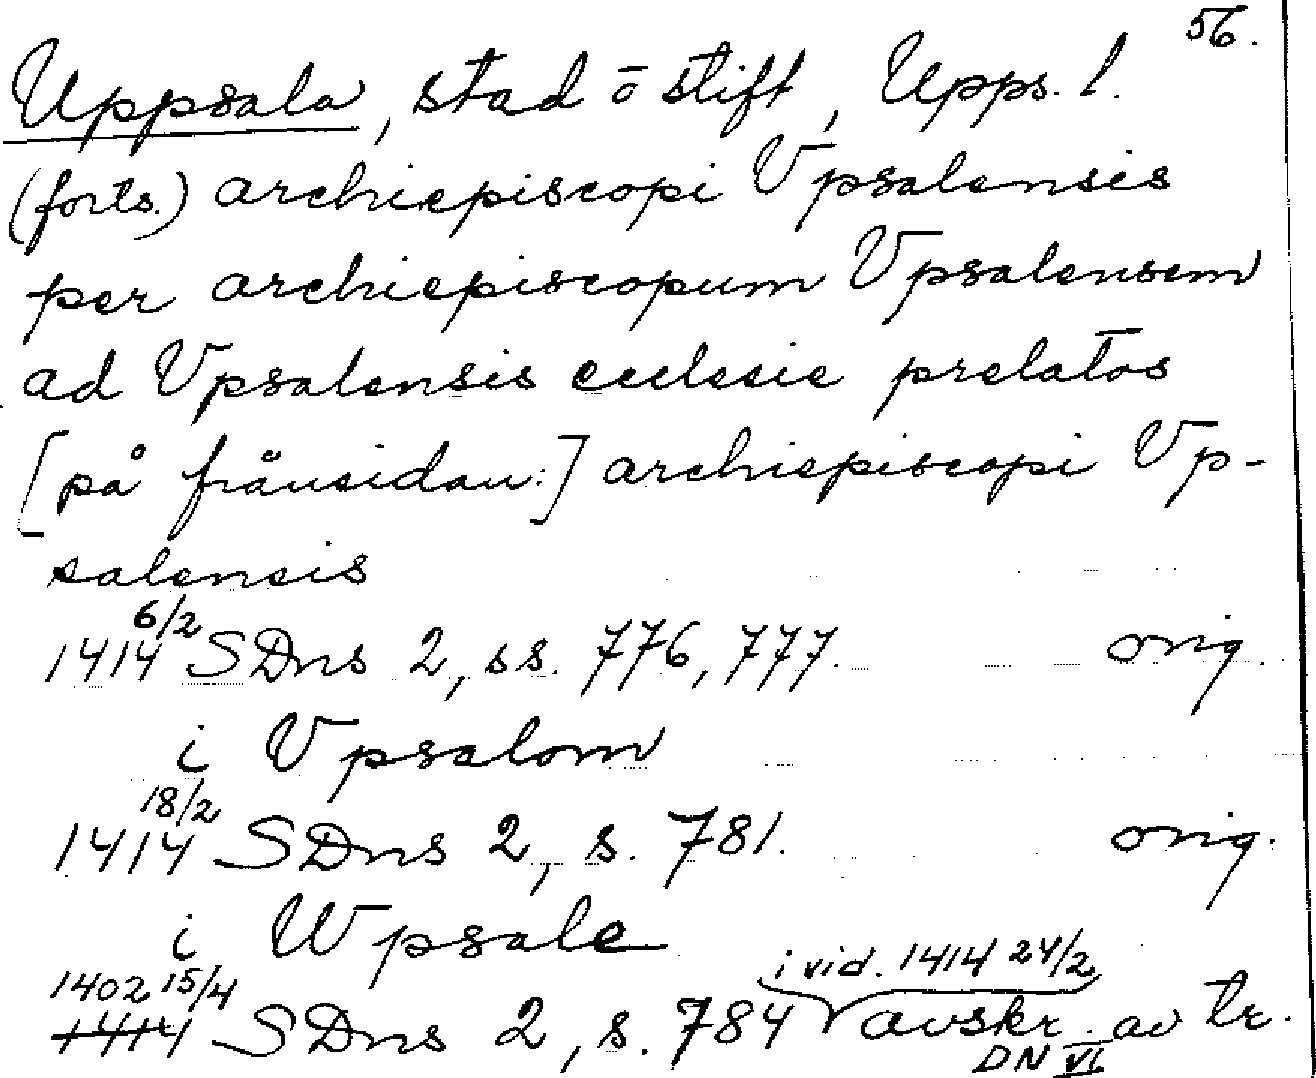 56.
Uppsala, stad o stift, Upps. l.
(forts.) archiepiscopi Vpsalensis
per archiepiscopum Vpsalensem
ad Vpsalensis ecclesie prelatos
[på frånsidan:] archiepiscopi Vp-
salensis
1414 6/2 SDns 2, ss. 776, 777. orig.
i Vpsalom
1414 18/2 SDns 2, s. 781. orig.
i Wpsale
i vid. 1414 24/2
1402 15/4
1414 SDns 2, s. 784 avskr. av tr.
DN VI